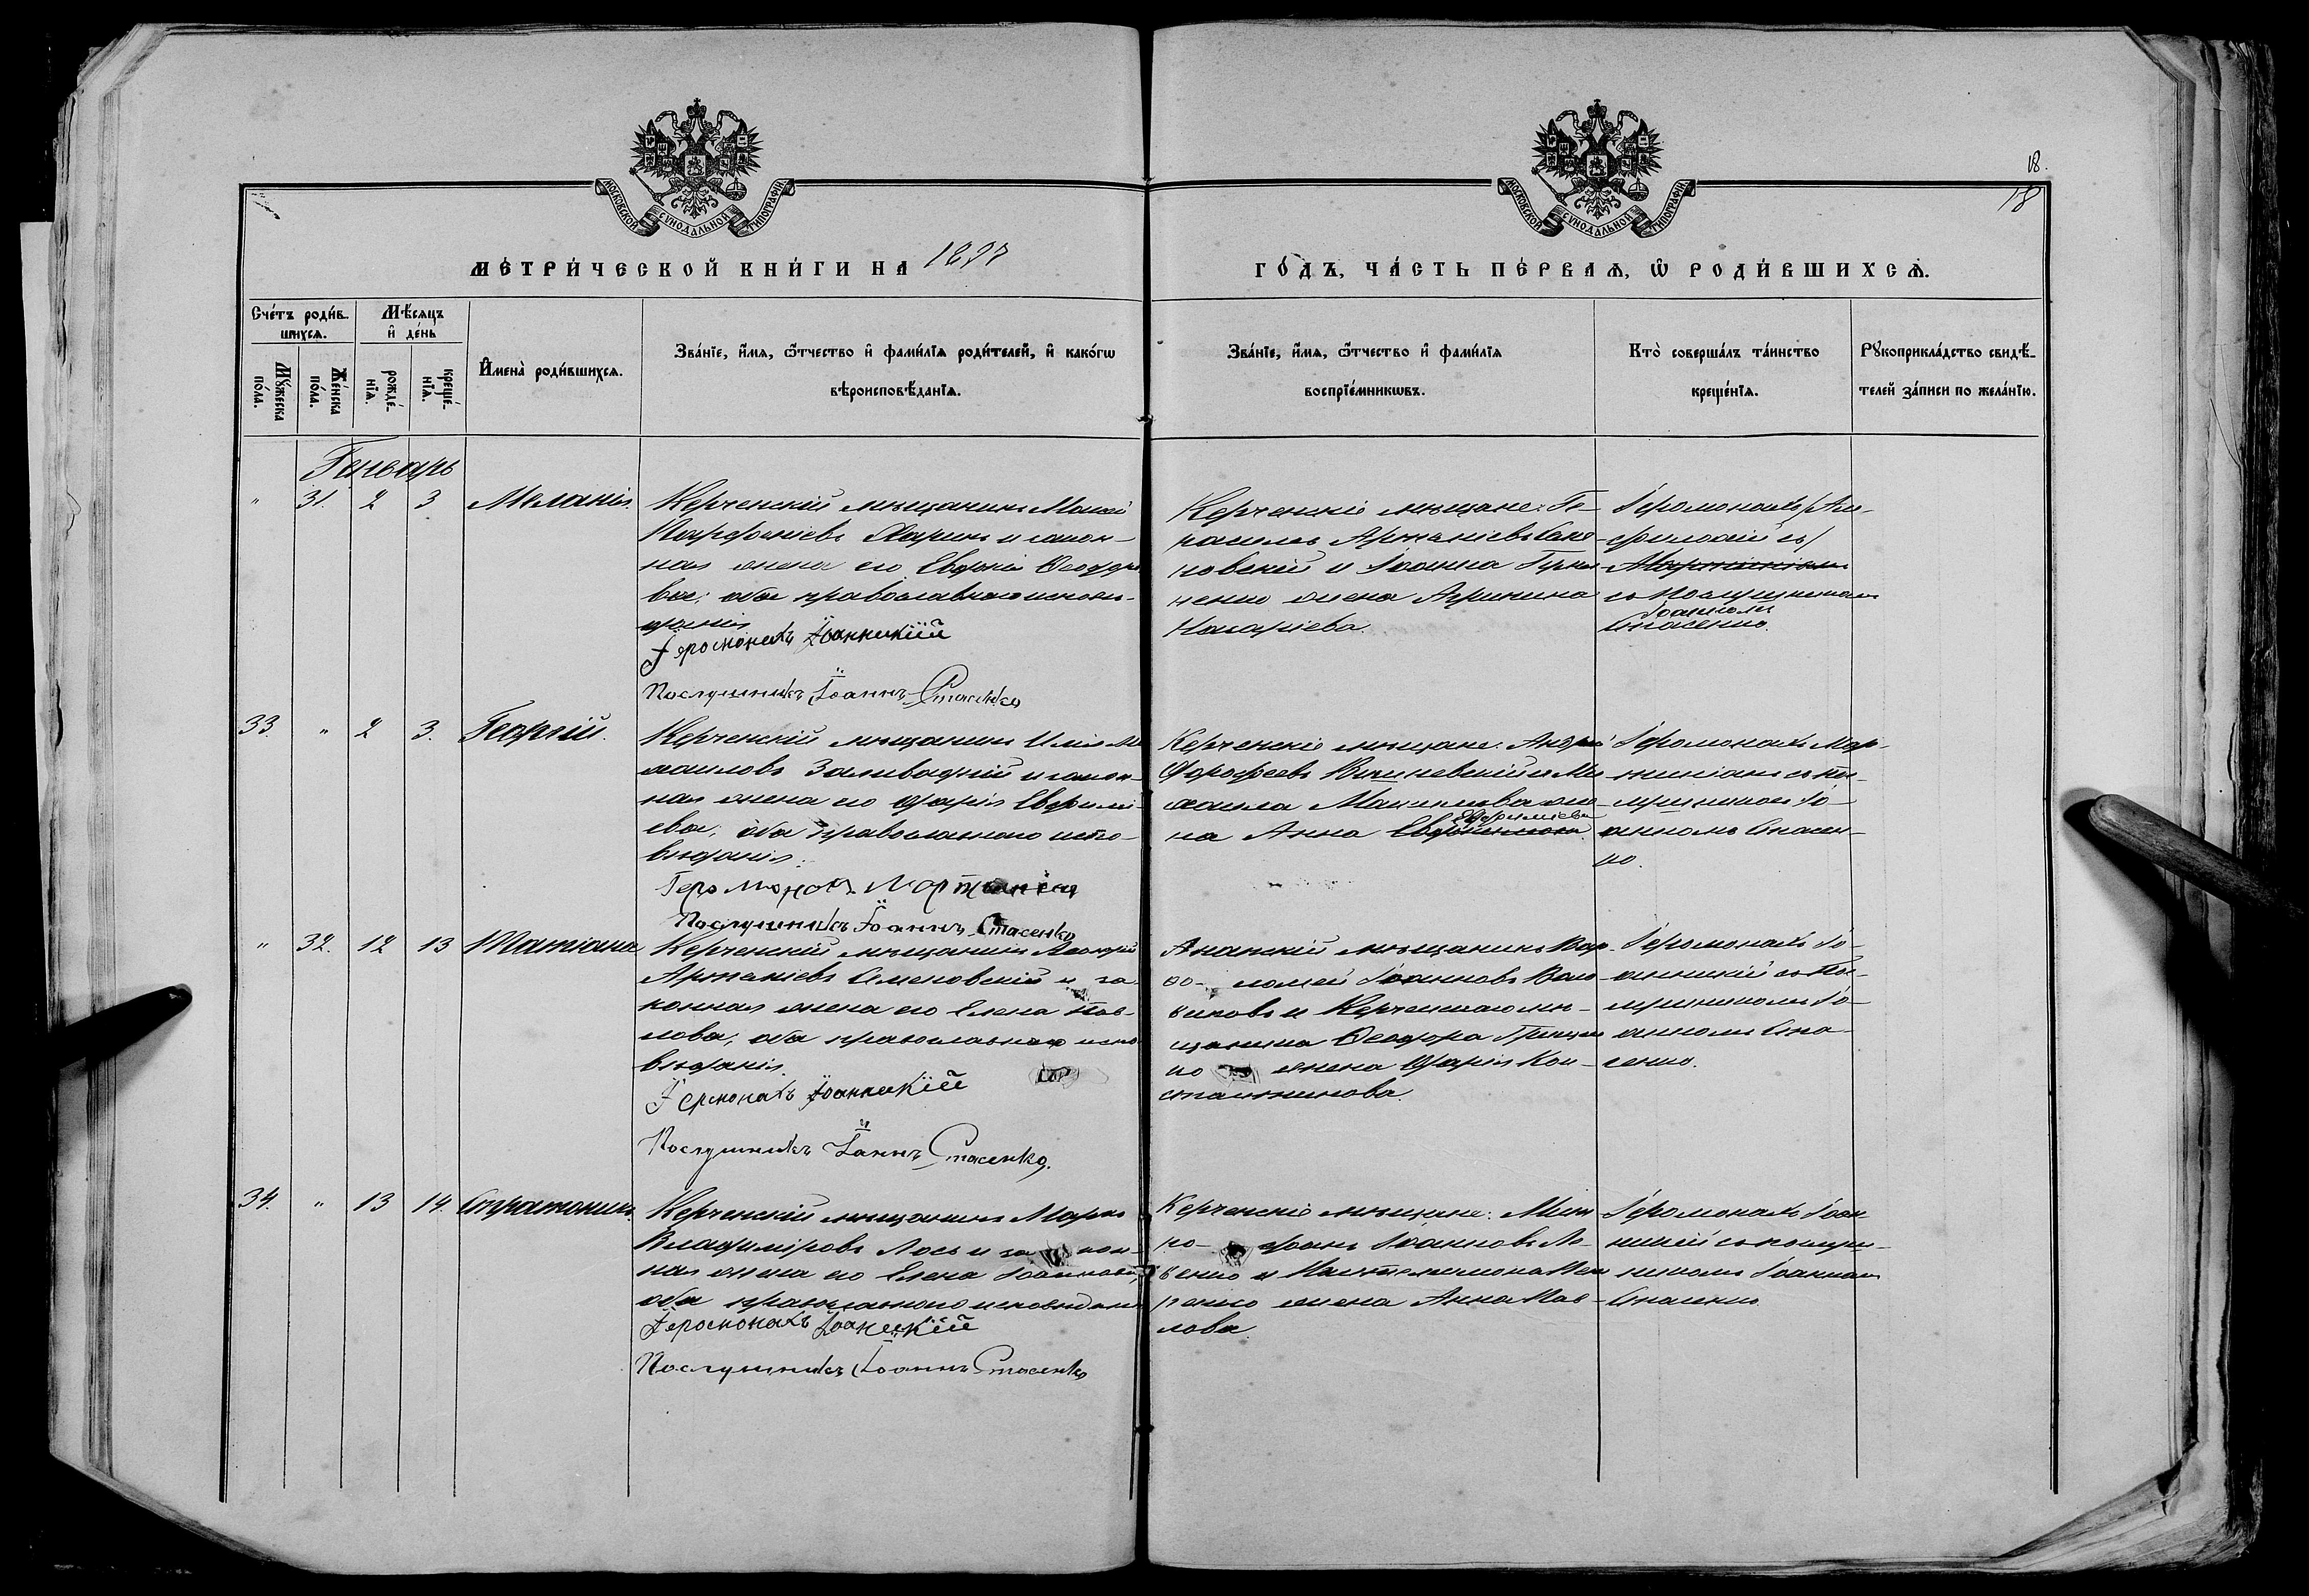 18.
18
МОСКОВСКОЙ СѴНОДАЛЬНОЙ ТИПОГРАФІИ
МОСКОВСКОЙ СѴНОДАЛЬНОЙ ТИПОГРАФІИ
МЕ́ТРИ́ЧЕСКОЙ КНИ́ГИ НА 1897
ГО́ДЪ, ЧА́СТЬ ПЕ́РВАѦ, Ѽ РОДИ́ВШИХСѦ.
Сче́тъ роди́в-
шихсѧ.
Мꙋ́жеска по́ла.
Же́нска по́ла.
Мѣ́сѧцъ
и҆ де́нь
рожде́-
нїѧ.
креще́-
нїѧ.
И҆мена̀ роди́вшихсѧ.
Зва́нїе, и҆́мѧ, ѻ҆́тчество и҆ фами́лїѧ роди́телей, и҆ како́гѡ
вѣроисповѣ́данїѧ.
Зва́нїе, и҆́мѧ, ѻ҆́тчество и҆ фами́лїѧ
воспрїе́мникѡвъ.
Кто̀ соверша́лъ та́инство
креще́нїѧ.
Рꙋкоприкла́дство свидѣ́-
телей за́писи по жела́нїю.
Генварь
" 31. 2 3 Меланія
Керченскій мѣщанинъ
и закон-
ная жена его Ѳеодоро-
ва; оба православнаго испові-
данія
Іеромонахъ Іоанникій
Послушникъ Іоаннъ Стасенко
Керченскіе мѣщане: Ге-
расимъ Артаніевъ Семе-
новскій и Іоанна
жена Агрипина
Іеромонахъ
съ Послушникомъ
Іоанномъ
Стасенко.
33. " 2 3. Георгій.
Керченскій мѣщанинъ Илія Ми-
хаиловъ Заливадній и закон-
ная жена его Марія Евфимі-
ева; оба православнаго испо-
вѣданія.
Іеромонахъ
Послушникъ Іоаннъ Стасенко
Керченскіе мѣщане: Андрей
Дорофеевъ Вишневскій и Ми-
хаила же-
на Анна Евфиміева
Іеромонахъ Мар-
тиніанъ съ По-
слушникомъ Іо-
анномъ Стасен-
ко.
" 32. 12 13 Татіана
Керченскій мѣщанинъ
Артаніевъ Семеновскій и за-
конная жена его Елена Пав-
лова; оба православнаго испо-
вѣданія.
Іермонахъ Іоанникій
Послушникъ Іаннъ Стасенко.
Анапскій мѣщанинъ Вар-
ѳо- ломей Іоанновъ
и Керченскаго мѣ-
щанина Ѳеодора Грицен-
ко жена Марія Кон-
стантинова.
Іеромонахъ Іо-
анникій съ По-
слушникомъ Іо-
анномъ Ста-
сенко.
34. " 13 14. Стратоникъ.
Керченскій мѣщанинъ Маркъ
Владиміровъ Лось и за кон-
ная жена его Елена Іоаннова;
оба православнаго исповѣданія
Іеромонахъ Іоаникій
Послушникъ Іоаннъ Стасенко
Керченскіе мѣщане: Мит-
ро- фанъ Іоанновъ Ле-
венко и Пантелеимона
жена Анна Пав-
лова.
Іеромонахъ Іоан-
никій съ послуш-
никомъ Іоанномъ
Стасенко